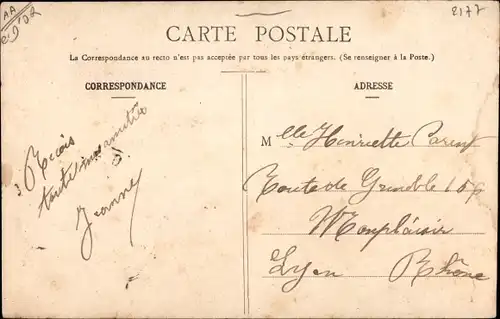 AA
2177
CARTE POSTALE
La Correspondance au recto n'est pas acceptée par tous les pays étrangers. (Se renseigner à la Poste.)
CORRESPONDANCE
Recois
toute mon amitié
Jeanne
ADRESSE
Melle Henriette Parent
Route de Grenoble 159
Monplaisir
Lyon Rhône